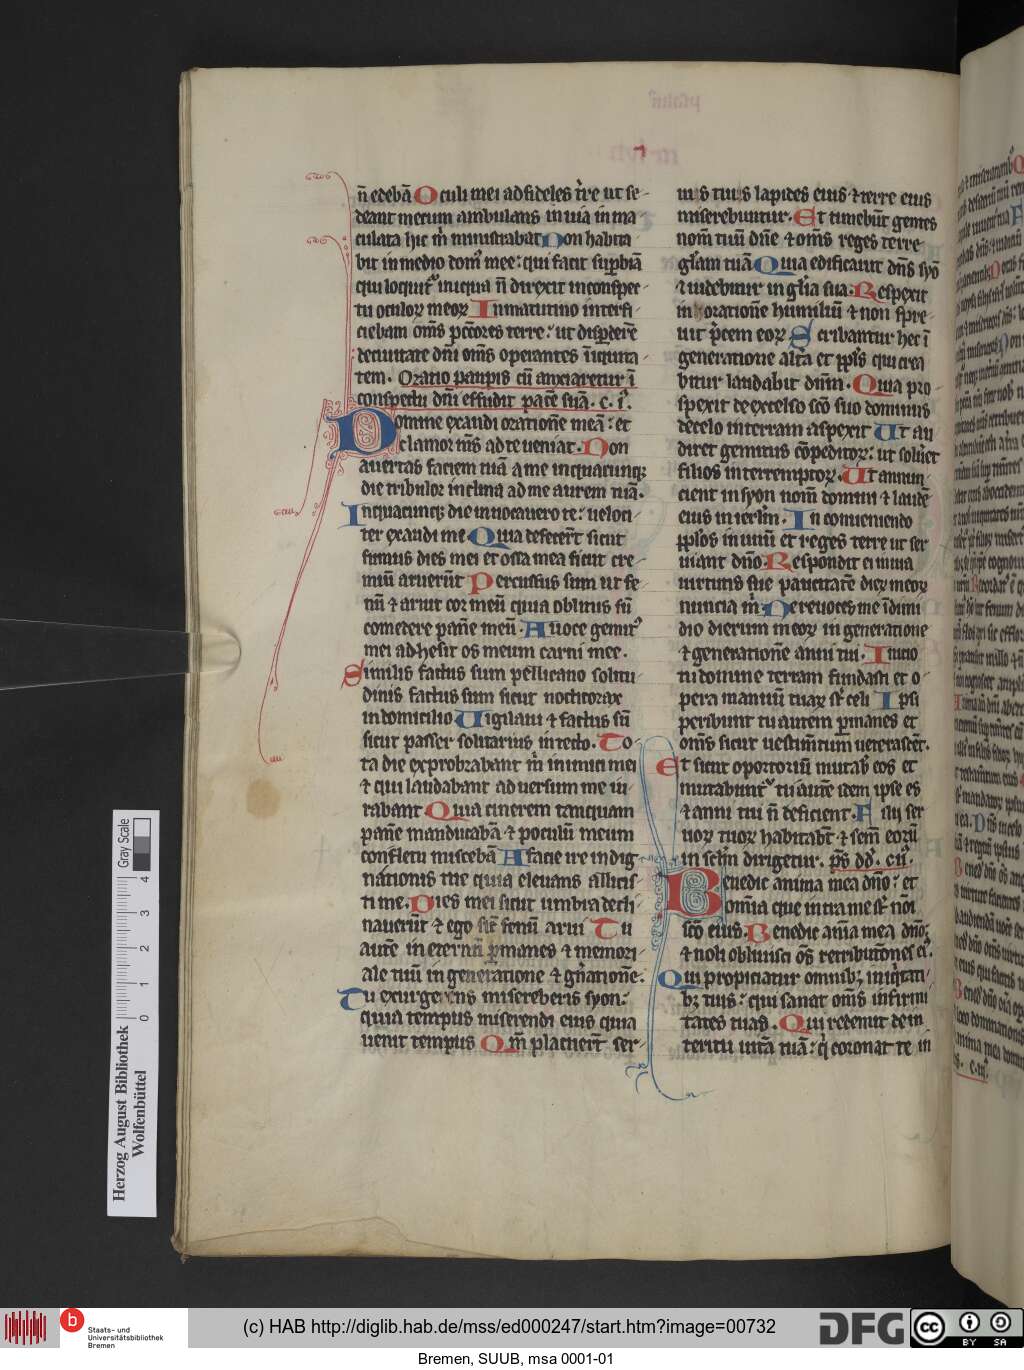 n̄ edebā Oculi mei ad fideles t̄re ut se-
deant mecum ambulans in uia in ma-
culata hic m̄ ministrabat Non habita
bit in medio domꝰ mee: qui facit suꝑbiā
qui loquitꝰ iniqua n̄ direxit in conspec-
tu oculoꝝ meoꝝ In matutino interfi-
ciebam om̄s pc̄tores terre: ut disꝑderē
de ciuitate dn̄i om̄s operantes īiquita-
tem. Oratio paupis cū anxiaretur ī
conspectu dn̄i effudit p̄cē suā. c. i.
Domine exaudi orationē meā: et
clamor m̄s ad te ueniat. Non
auertas faciem tuā a me in quacunqꝫ
die tribuloꝛ inclina ad me aurem tuā.
In quacunqꝫ die inuocauero te: ueloci-
ter exaudi me. Quia defecer̄t sicut
fumus dies mei et ossa mea sicut cre-
miū aruerūt Percussus sum ut fe-
nū ⁊ aruit cor meū quia oblitus sū
comedere panē meū. A uoce gemitꝰ
mei adhesit os meum carni mee.
Similis factus sum pellicano solitu-
dinis factus sum sicut nocticorax
in domicilio Uigilaui ⁊ factus sū
sicut passer solitarius in tecto. To-
ta die exprobrabant m̄ inimici mei
⁊ qui laudabant aduersum me iu-
rabant Quia cinerem tanquam
panē manducabā ⁊ poculū meum
cum fletu miscebā A facie ire indig-
nationis tue quia eleuans allisis-
ti me. Dies mei sicut umbra decli-
nauerūt ⁊ ego sic̄ fenū arui Tu
autē in eternū ꝑmanes ⁊ memori-
ale tuū in generatione ⁊ gn̄ationē.
Tu exurgens misereberis syon:
quia tempus miserendi eius quia
uenit tempus Qm̄ placuer̄t ser-
uis tuis lapides eius ⁊ terre eius
miserebuntur. Et timebūt gentes
nom̄ tuū dn̄e ⁊ om̄s reges terre
gl̄am tuā Quia edificauit dn̄s syō
⁊ uidebitur in gl̄ia sua. Respexit
in orationē humiliū ⁊ non spre-
uit p̄cem eoꝝ Scribantur hec ī
generatione alt̄a et ppl̄s qui crea
bitur laudabit dn̄m. Quia pro-
spexit de excelso sc̄o suo dominus
de celo in terram aspexit Ut au
diret gemitus cōpeditoꝝ: ut solu̇et
filios interremptoꝝ. Ut annun-
cient in syon nom̄ domini ⁊ laudē
eius in ierl̄m. In conueniendo
ppl̄os in unū et reges terre ut ser
uiant dn̄o Respondit ei in uia
uirtutis sue paucitatē dieꝝ meoꝝ
nuncia m̄ Ne reuoces me ī dimi
dio dierum meoꝝ in generatione
⁊ generationē anni tui. Inicio
tu domine terram fundasti et o-
pera manuū tuaꝝ sr̄ celi Ipsi
peribunt tu autem ꝑmanes et
om̄s sicut uestim̄tum ueterascēt.
Et sicut oportoriū mutab̄ eos et
mutabuntꝰ tu autē idem ipse es
⁊ anni tui n̄ deficient. Filij ser
uoꝝ tuoꝝ habitab̄t ⁊ sem̄ eorū
in sc̄l̄m dirigetur. ps̄ dd̄. cii.
Benedic anima mea dn̄o: et
om̄ia que intra me sr̄ nōi
sc̄o eius. Benedic aīa mea dn̄o:
⁊ noli obliuisci om̄s retributōnes eiꝰ
Qui propiciatur omnibꝫ iniq̄tati-
bꝫ tuis: qui sanat om̄s infirmi
tates tuas. Qui redemit de in
teritu uitā tuā: q̇ coronat te in
Gray Scale
0 1 2 3 4
Herzog August Bibliothek
Wolfenbüttel
b
Staats- und
Universitätsbibliothek
Bremen
(c) HAB http://diglib.hab.de/mss/ed000247/start.htm?image=00732
DFG
cc
BY SA
Bremen, SUUB, msa 0001-01